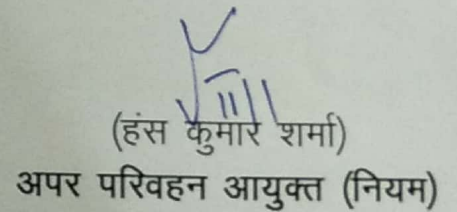 (हंस कुमार शर्मा)
अपर परिवहन आयुक्त (नियम)